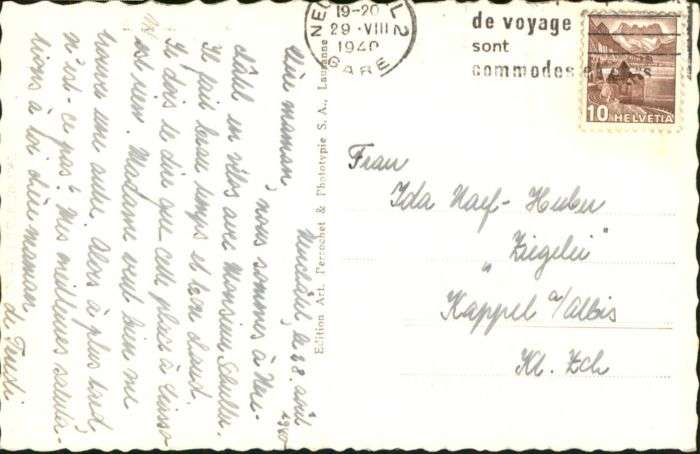 NE L 2
19-20
29.VIII
1940
GARE
de voyage
sont
commodes et
10 HELVETIA
Neuchâtel, le 28. août
1940
Chère maman,
nous sommes à Neu-
châtel en vélos avec Monsieur
Il fait beau temps et bon chaud.
Je dois te dire que cette place à
est rien. Madame veut bien me
trouver une autre. Alors à plus tard,
n'est-ce pas? Mes meilleures saluta-
tions à toi chère maman
Edition Art. Perrochet & Phototypie S. A., Lausanne
Frau
Ida Naef-Huber
„Ziegelei"
Kappel a/Albis
Kt. Zch